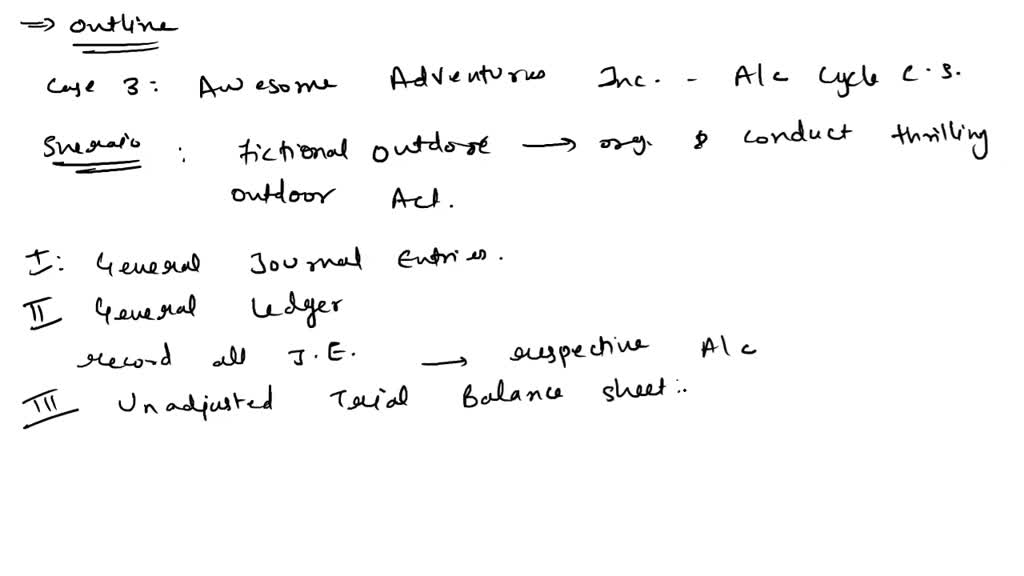 ⇒ Outline
Case 3: Awesome Adventures Inc. - A/c Cycle C.S.
Scenario : fictional outdoor → org. & conduct thrilling
outdoor Act.
I: General Journal Entries.
II General Ledger
record all J.E. → respective A/c
III Unadjusted Trial Balance sheet:-